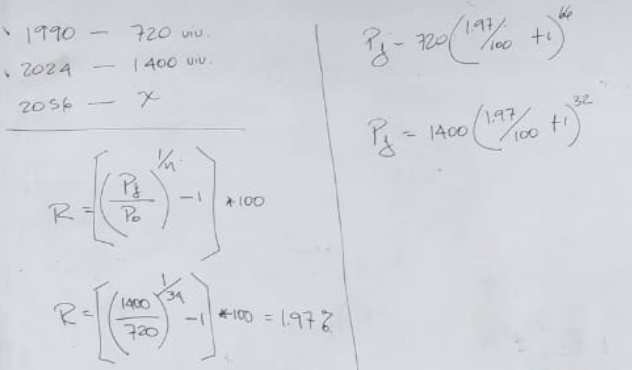 1990 — 720 viv.
2024 — 1400 viv.
2056 — x
R = [(Pf/Po)^1/n - 1] * 100
R = [(1400/720)^1/34 - 1] * 100 = 1.97 %
Pf = 720 (1.97/100 + 1)^66
Pf = 1400 (1.97/100 + 1)^32